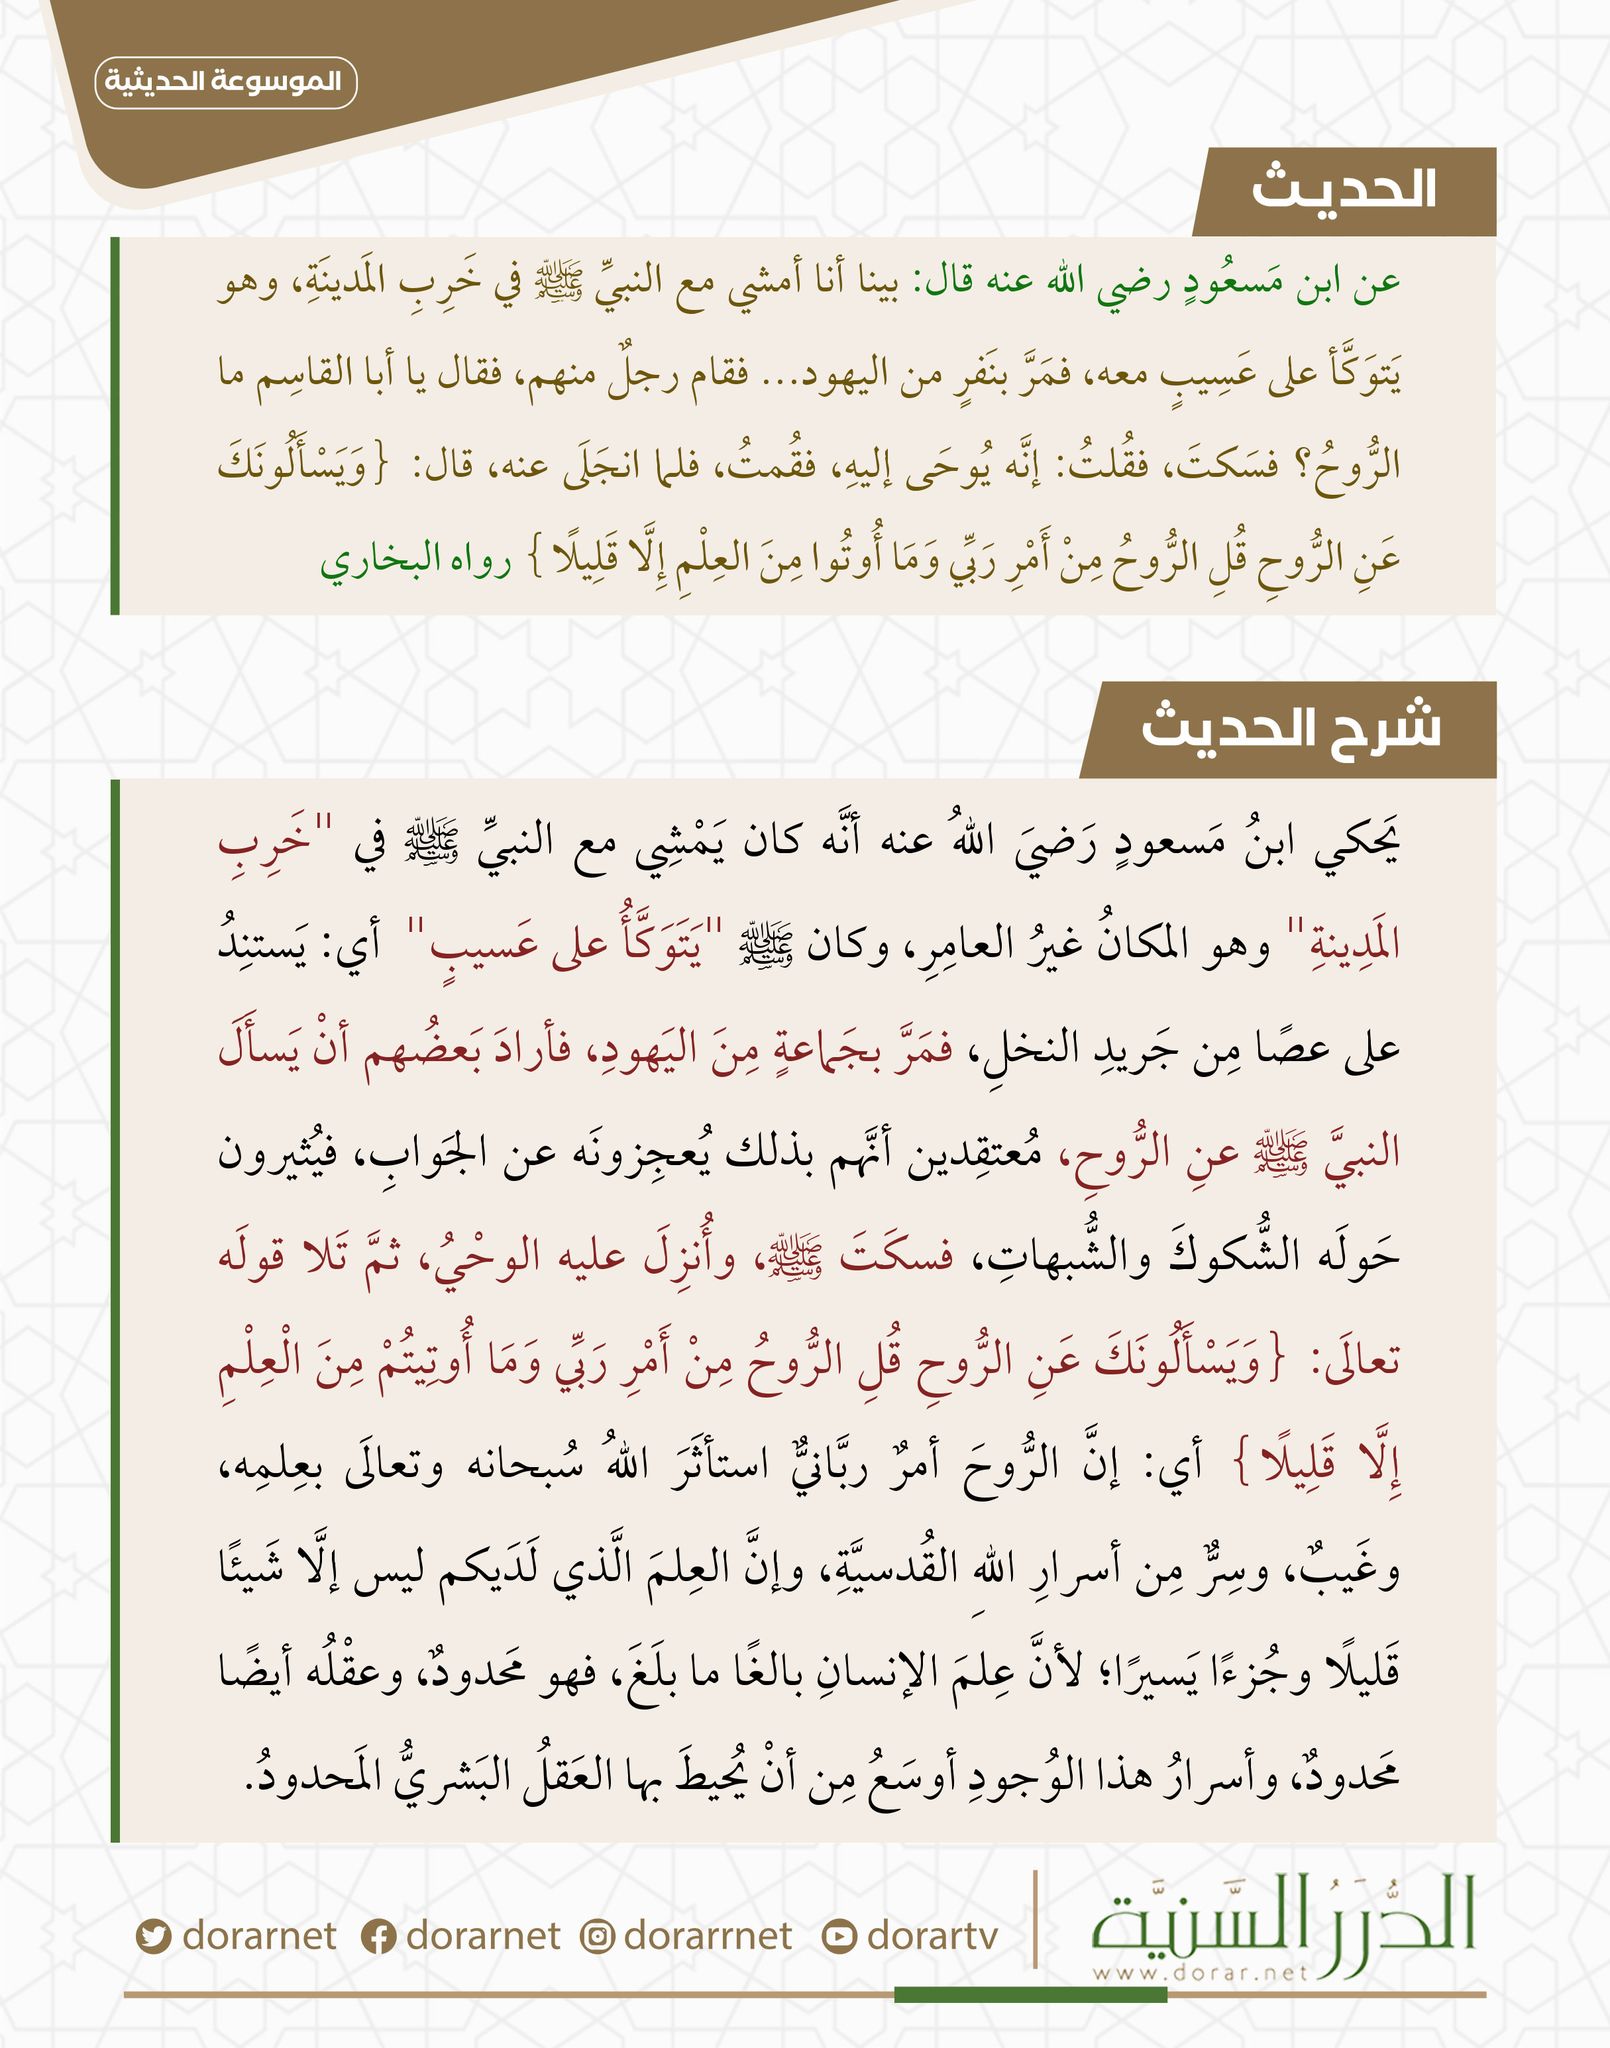 الموسوعة الحديثية
الحديث
عن ابن مَسعُودٍ رضي الله عنه قال: بينا أنا أمشي مع النبيِّ ﷺ في خَرِبِ المَدينَةِ، وهو
يَتوَكَّأ على عَسِيبٍ معه، فمَرَّ بنَفرٍ من اليهود... فقام رجلٌ منهم، فقال يا أبا القاسِم ما
الرُّوحُ؟ فسَكتَ، فقُلتُ: إنَّه يُوحَى إليهِ، فقُمتُ، فلما انجَلَى عنه، قال: {وَيَسْأَلُونَكَ
عَنِ الرُّوحِ قُلِ الرُّوحُ مِنْ أَمْرِ رَبِّي وَمَا أُوتُوا مِنَ العِلْمِ إِلَّا قَلِيلًا} رواه البخاري
شرح الحديث
يَحكي ابنُ مَسعودٍ رَضيَ اللهُ عنه أنَّه كان يَمْشِي مع النبيِّ ﷺ في "خَرِبِ
المَدِينةِ" وهو المكانُ غيرُ العامِرِ، وكان ﷺ "يَتَوَكَّأُ على عَسيبٍ" أي: يَستنِدُ
على عصًا مِن جَريدِ النخلِ، فمَرَّ بجَماعةٍ مِنَ اليَهودِ، فأرادَ بَعضُهم أنْ يَسألَ
النبيَّ ﷺ عنِ الرُّوحِ، مُعتقِدين أنَّهم بذلك يُعجِزونَه عن الجَوابِ، فيُثيرون
حَولَه الشُّكوكَ والشُّبهاتِ، فسكَتَ ﷺ، وأُنزِلَ عليه الوحْيُ، ثمَّ تَلا قولَه
تعالَى: {وَيَسْأَلُونَكَ عَنِ الرُّوحِ قُلِ الرُّوحُ مِنْ أَمْرِ رَبِّي وَمَا أُوتِيتُمْ مِنَ الْعِلْمِ
إِلَّا قَلِيلًا} أي: إنَّ الرُّوحَ أمرٌ ربَّانيٌّ استأثَرَ اللهُ سُبحانه وتعالَى بعِلمِه،
وغَيبٌ، وسِرٌّ مِن أسرارِ اللهِ القُدسيَّةِ، وإنَّ العِلمَ الَّذي لَدَيكم ليس إلَّا شَيئًا
قَليلًا وجُزءًا يَسيرًا؛ لأنَّ عِلمَ الإنسانِ بالغًا ما بلَغَ، فهو مَحدودٌ، وعقْلُه أيضًا
مَحدودٌ، وأسرارُ هذا الوُجودِ أوسَعُ مِن أنْ يُحيطَ بها العَقلُ البَشريُّ المَحدودُ.
الدُّرَرُ السَّنيَّة
www.dorar.net
dorarnet dorarnet dorarrnet dorartv